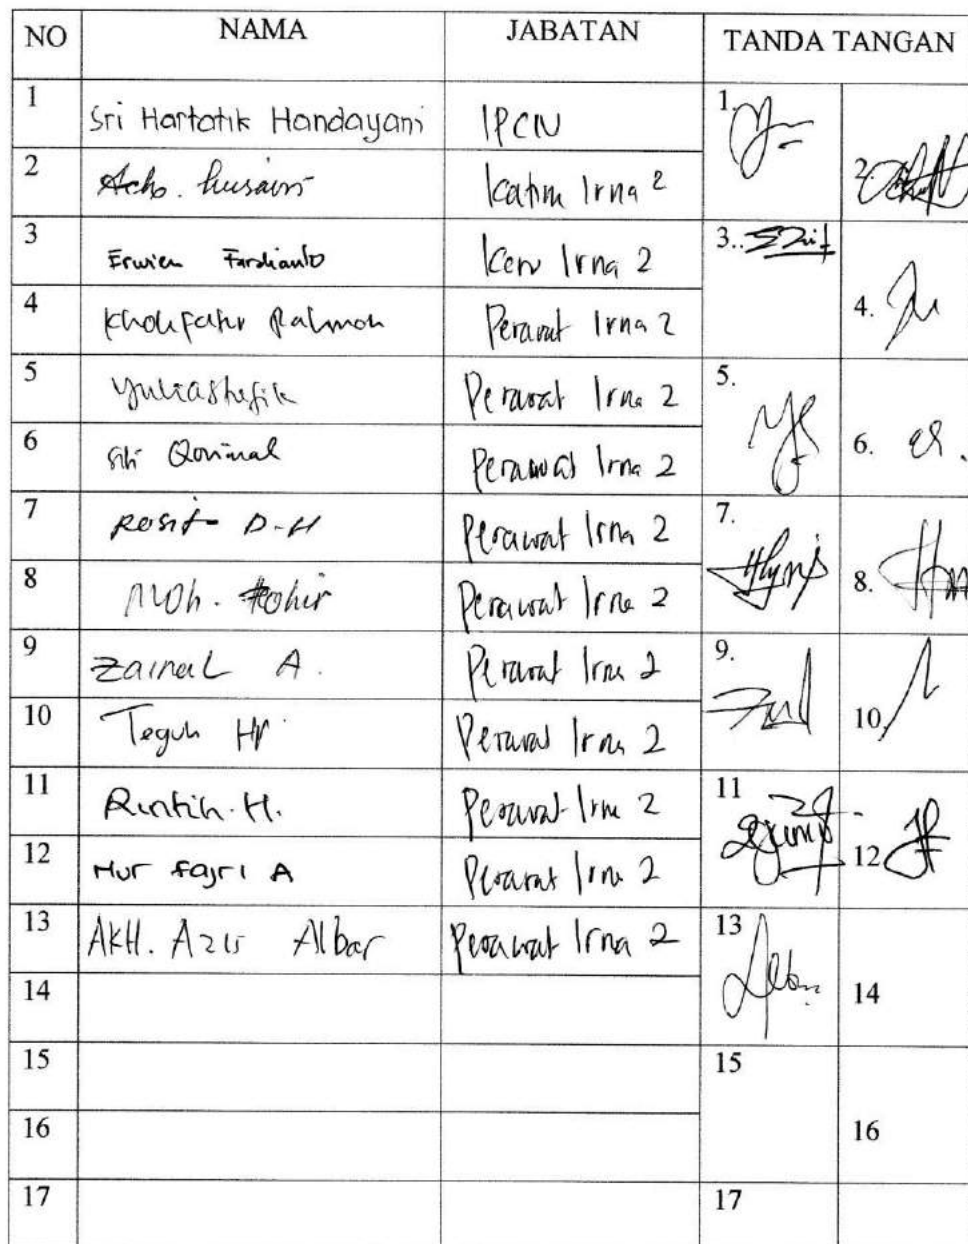 NO NAMA JABATAN TANDA TANGAN
1 Sri Hartatik Handayani IPCN 1.
2 Ach. Husaini Katim Irna 2 2.
3 Erwien Fardianto Karu Irna 2 3..
4 Rahman Perawat Irna 2 4.
5 Perawat Irna 2 5.
6 Siti Perawat Irna 2 6.
7 D-H Perawat Irna 2 7.
8 Moh. Perawat Irna 2 8.
9 Zainal A. Perawat Irna 2 9.
10 Teguh Perawat Irna 2 10
11 H. Perawat Irna 2 11
12 Nur Fajri A Perawat Irna 2 12
13 AKH. Azis Albar Perawat Irna 2 13
14 14
15 15
16 16
17 17